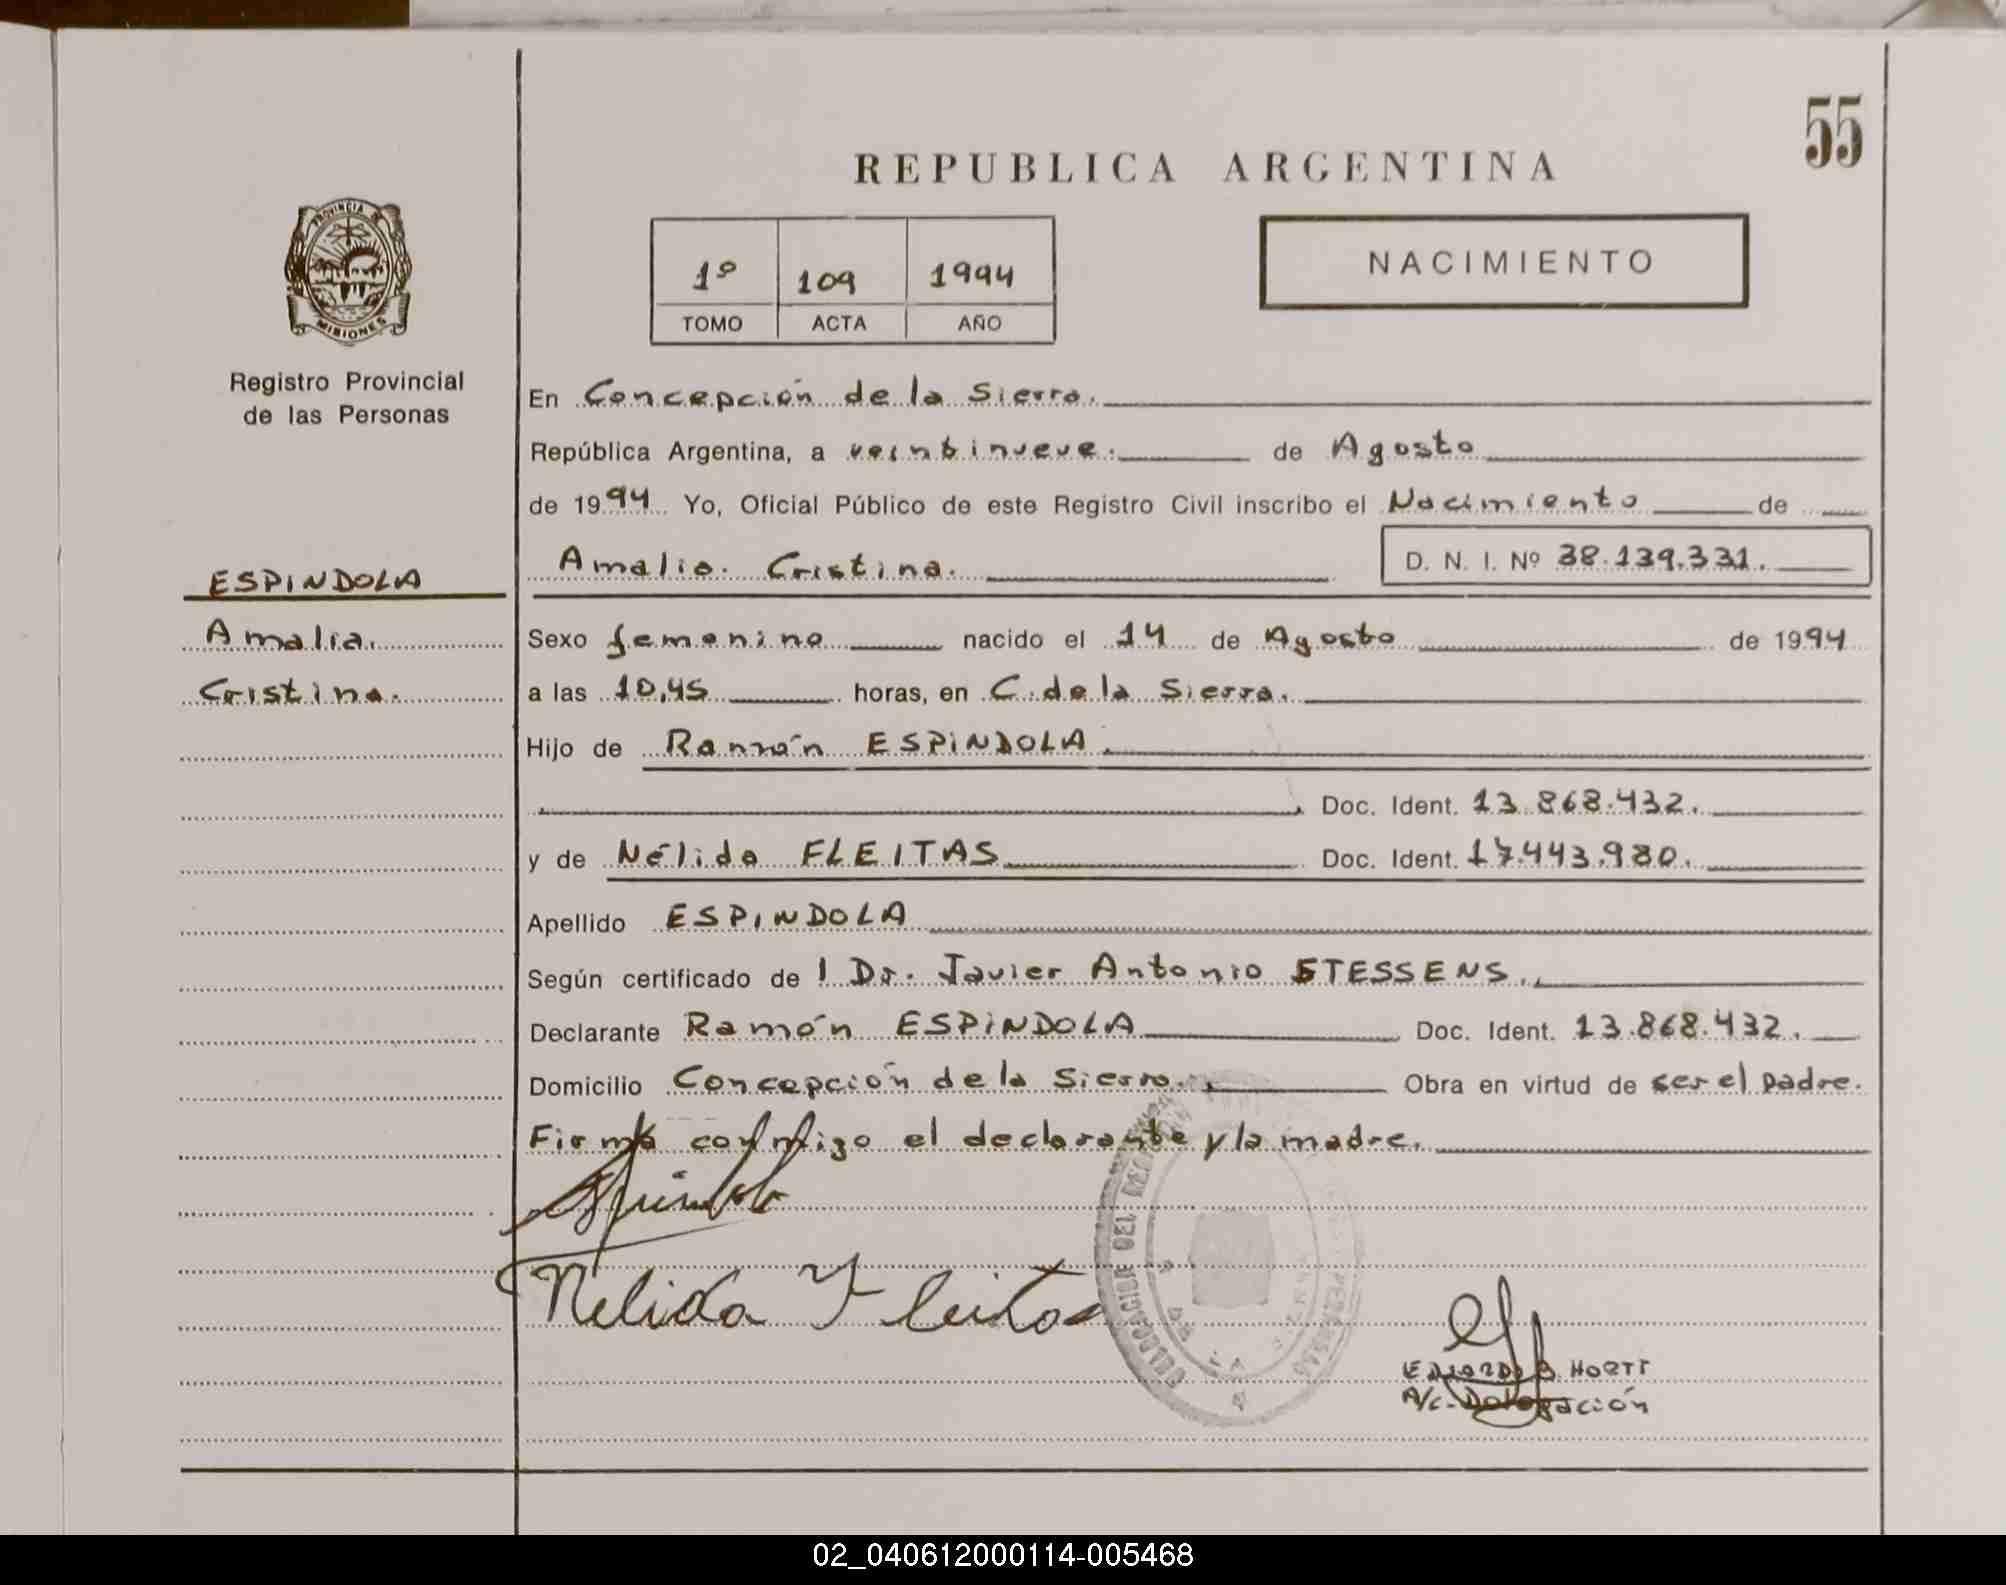 55
REPUBLICA ARGENTINA
PROVINCIA DE
MISIONES
Registro Provincial
de las Personas
1º 109 1994
TOMO ACTA AÑO
NACIMIENTO
En Concepción de la Sierra.
República Argentina, a veintinueve. de Agosto
de 1994 Yo, Oficial Público de este Registro Civil inscribo el Nacimiento de
Amalia. Cristina. D. N. I. Nº 38.139.331.
ESPINDOLA
Amalia.
Cristina.
Sexo femenino nacido el 14 de Agosto de 1994
a las 10,45 horas, en C. de la Sierra.
Hijo de Ramón ESPINDOLA.
Doc. Ident. 13.868.432.
y de Nélida FLEITAS Doc. Ident. 17.443.980.
Apellido ESPINDOLA
Según certificado de l Dr. Javier Antonio STESSENS.
Declarante Ramón ESPINDOLA Doc. Ident. 13.868.432.
Domicilio Concepción de la Sierra. Obra en virtud de ser el padre.
Firma conmigo el declarante y la madre.
Espindola
Nelida Fleitas
DELEGACION DEL
A/c. Delegación
02_040612000114-005468